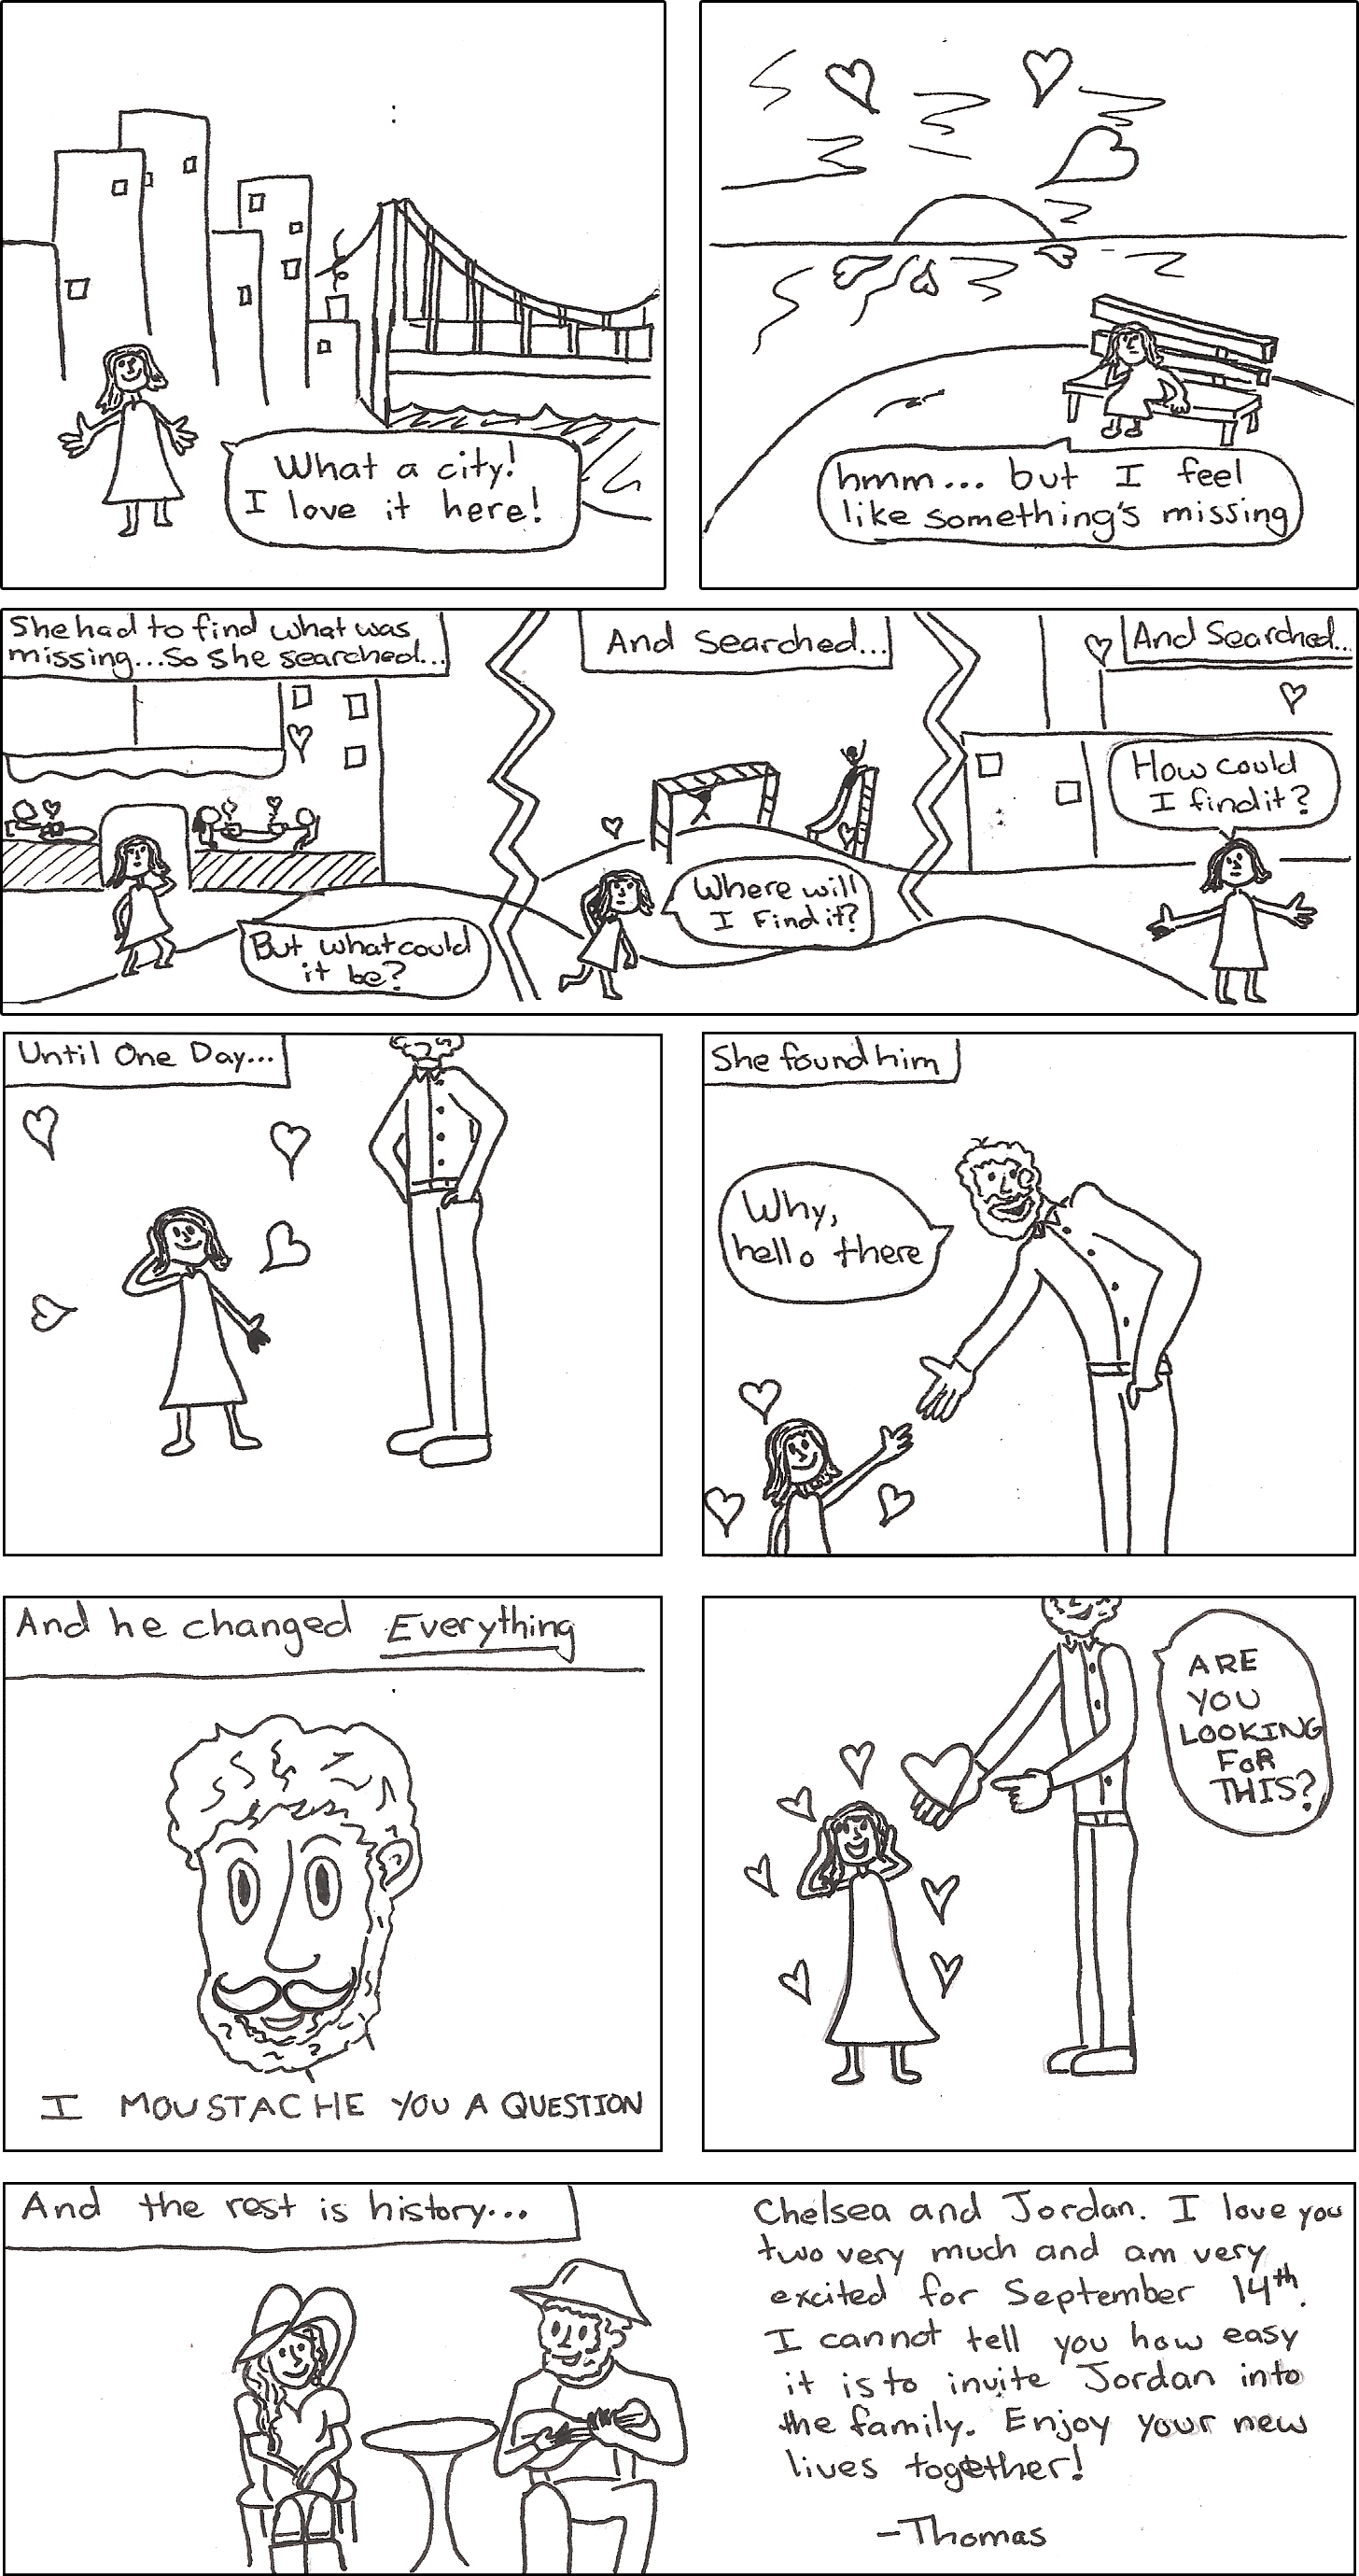 What a city!
I love it here!
hmm... but I feel
like something's missing
She had to find what was
missing...So she searched...
But what could
it be?
And Searched...
Where will
I Find it?
And Searched...
How could
I find it?
Until One Day...
She found him
Why,
hello there
And he changed Everything
I MOUSTACHE YOU A QUESTION
ARE
YOU
LOOKING
FOR
THIS?
And the rest is history...
Chelsea and Jordan. I love you
two very much and am very
excited for September 14th.
I cannot tell you how easy
it is to invite Jordan into
the family. Enjoy your new
lives together!
-Thomas